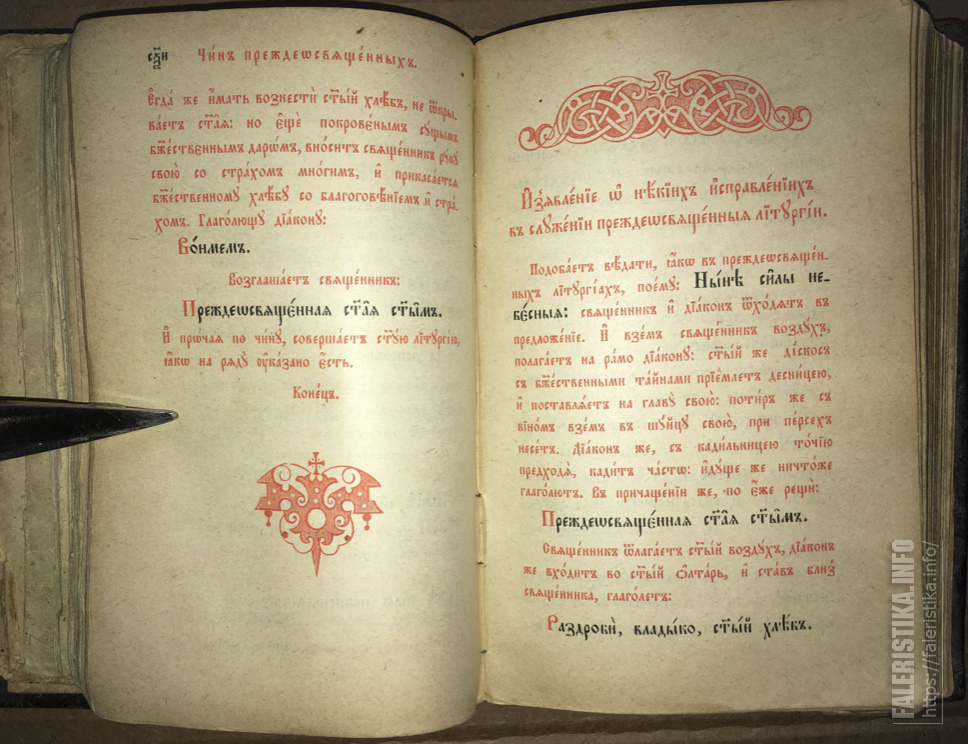 сѯ҃и Чи́нъ преждеѡсвѧще́нныхъ.
Є҆гда̀ же и҆́мать вознестѝ ст҃ы́й хлѣ́бъ, не ѿкры-
ва́етъ ст҃а̑ѧ: но є҆щѐ покрове́нымъ сꙋ́щымъ
бж҃е́ствєннымъ дарѡ́мъ, вно́ситъ свѧще́нникъ рꙋ́кꙋ
свою̀ со стра́хомъ мно́гимъ, и҆ прикаса́етсѧ
бж҃е́ственномꙋ хлѣ́бꙋ со благоговѣ́нїемъ и҆ стра́-
хомъ. Глаго́лющꙋ дїа́конꙋ:
Во́нмемъ.
Возглаша́етъ свѧще́нникъ:
Преждеѡсвѧщє́ннаѧ ст҃а̑ѧ ст҃ы̑мъ.
И҆ прѡ́чаѧ по чи́нꙋ, соверша́етъ ст҃ꙋ́ю лїтꙋргі́ю,
ꙗ҆́кѡ на рѧдꙋ̀ ᲂу҆ка́зано є҆́сть.
Коне́цъ.
И҆з̾ѧвле́нїе ѡ҆ нѣ́кїихъ и҆справле́нїихъ
въ слꙋже́нїи преждеѡсвѧще́нныѧ лїтꙋргі́и.
Подоба́етъ вѣ́дати, ꙗ҆́кѡ въ преждеѡсвѧще́н-
ныхъ лїтꙋргі́ахъ, поє́мꙋ: Нн҃ѣ си̑лы не-
бє́сныѧ: свѧще́нникъ и҆ дїа́конъ ѿхо́дѧтъ въ
предложе́нїе. И҆ взе́мъ свѧще́нникъ воздꙋ́хъ,
полага́етъ на ра́мо дїа́конꙋ: ст҃ы́й же ді́скосъ
съ бж҃е́ственными та́йнами прїе́млетъ десни́цею,
и҆ поставлѧ́етъ на главꙋ̀ свою̀: поти́ръ же съ
вїно́мъ взе́мъ въ шꙋ́йцꙋ свою̀, при пе́рсехъ
несе́тъ. Дїа́конъ же, съ кади́льницею то́чїю
предходѧ̀, кади́тъ ча́стѡ: и҆дꙋ́ще же ничто́же
глаго́лютъ. Въ причаще́нїи же, по є҆́же рещѝ:
Преждеѡсвѧщє́ннаѧ ст҃а̑ѧ ст҃ы̑мъ.
Свѧще́нникъ ѿлага́етъ ст҃ы́й воздꙋ́хъ, дїа́конъ
же вхо́дитъ во ст҃ы́й ѻ҆лта́рь, и҆ ста́въ бли́з̾
свѧще́нника, глаго́летъ:
Раздробѝ, влады́ко, ст҃ы́й хлѣ́бъ.
FALERISTIKA.INFO
https://faleristika.info/